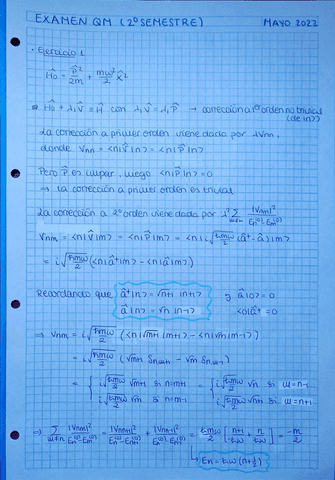 EXAMEN QM (2º SEMESTRE) MAYO 2022
· Ejercicio 1
Ĥ₀ = P̂²/2m + mω²/2 X̂²
⇒ Ĥ₀ + λ₁V̂ = Ĥ con λ₁V̂ = λ₁P̂ → corrección a 1º orden no trivial (de |n>)
La corrección a primer orden viene dada por λVnn,
donde Vnn = <n|V̂|n> = <n|P̂|n>
Pero P̂ es impar, luego <n|P̂|n> = 0
⇒ la corrección a primer orden es trivial
La corrección a 2º orden viene dada por λ² Σ |Vnm|²/(En⁽⁰⁾-Em⁽⁰⁾)
Vnm = <n|V̂|m> = <n|P̂|m> = <n| i√(ħmω/2) (â⁺-â)|m>
= i√(ħmω/2) (<n|â⁺|m> - <n|â|m>)
Recordando que â⁺|n> = √n+1 |n+1> y â|0> = 0
â|n> = √n |n-1> <0|â⁺ = 0
⇒ Vnm = i√(ħmω/2) (<n|√m+1 |m+1> - <n|√m|m-1>)
= i√(ħmω/2) (√m+1 δn,m+1 - √m δn,m-1)
= { i√(ħmω/2) √m+1 si n=m+1 = { i√(ħmω/2) √n si m=n-1
i√(ħmω/2) √m si n=m-1 i√(ħmω/2) √n+1 si m=n+1
⇒ Σ m≠n |Vnm|²/(En⁽⁰⁾-Em⁽⁰⁾) = |Vnn+1|²/(En⁽⁰⁾-En+1⁽⁰⁾) + |Vnn-1|²/(En⁽⁰⁾-En-1⁽⁰⁾) = ħmω/2 [-(n+1)/ħω + n/ħω] = -m/2
→ En = ħω(n+½)